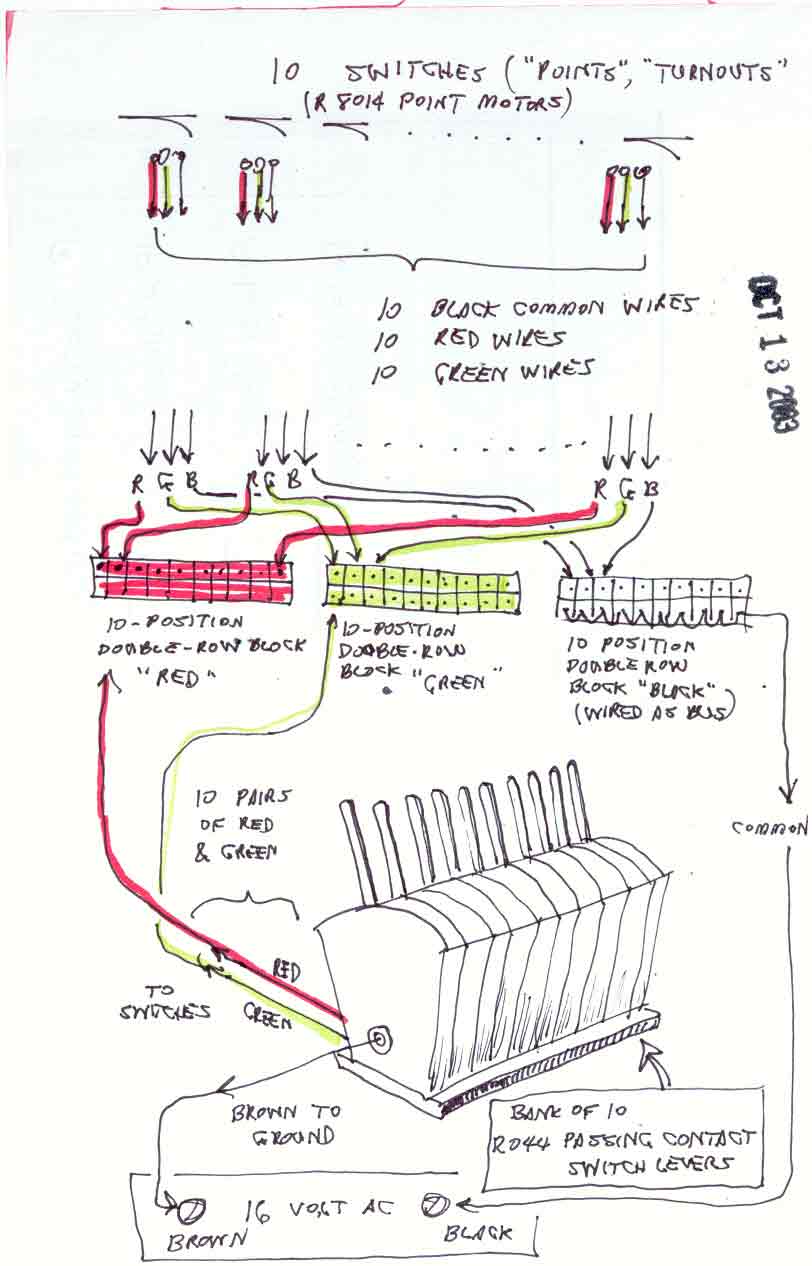 10 SWITCHES ("POINTS", "TURNOUTS"
(R 8014 POINT MOTORS)
10 BLACK COMMON WIRES
10 RED WIRES
10 GREEN WIRES
OCT 13 2003
R G B R G B R G B
10-POSITION
DOUBLE-ROW BLOCK
"RED"
10-POSITION
DOUBLE-ROW
BLOCK "GREEN"
10 POSITION
DOUBLE ROW
BLOCK "BLACK"
(WIRED AS BUS)
10 PAIRS
OF RED
& GREEN
COMMON
RED
GREEN
TO
SWITCHES
BROWN TO
GROUND
BANK OF 10
R044 PASSING CONTACT
SWITCH LEVERS
16 VOLT AC
BROWN
BLACK